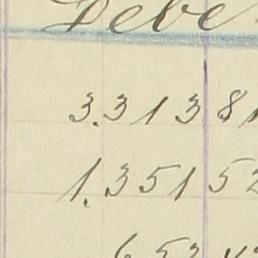 Debe
3.3138
1.35152